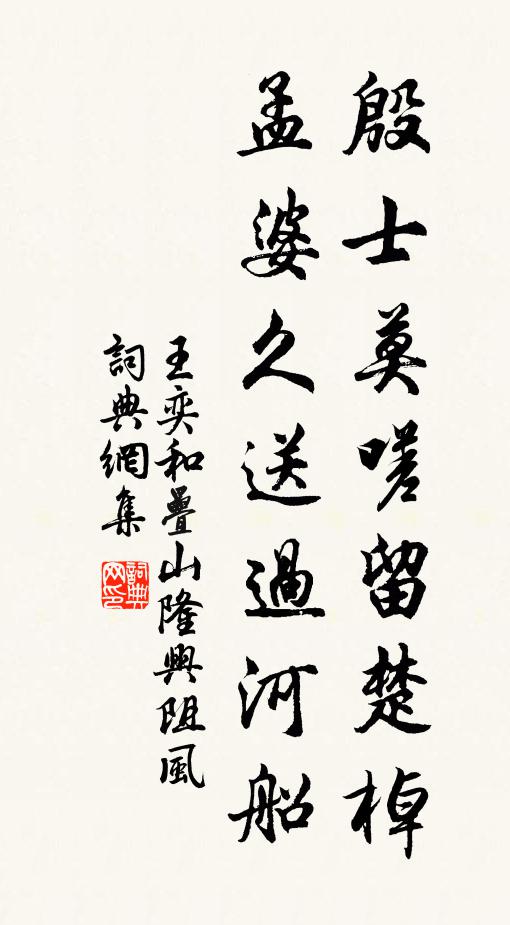 殷士莫嗟留楚棹
孟婆久送過河船
王奕和疊山隆興阻風
詞典網集
詞典网印